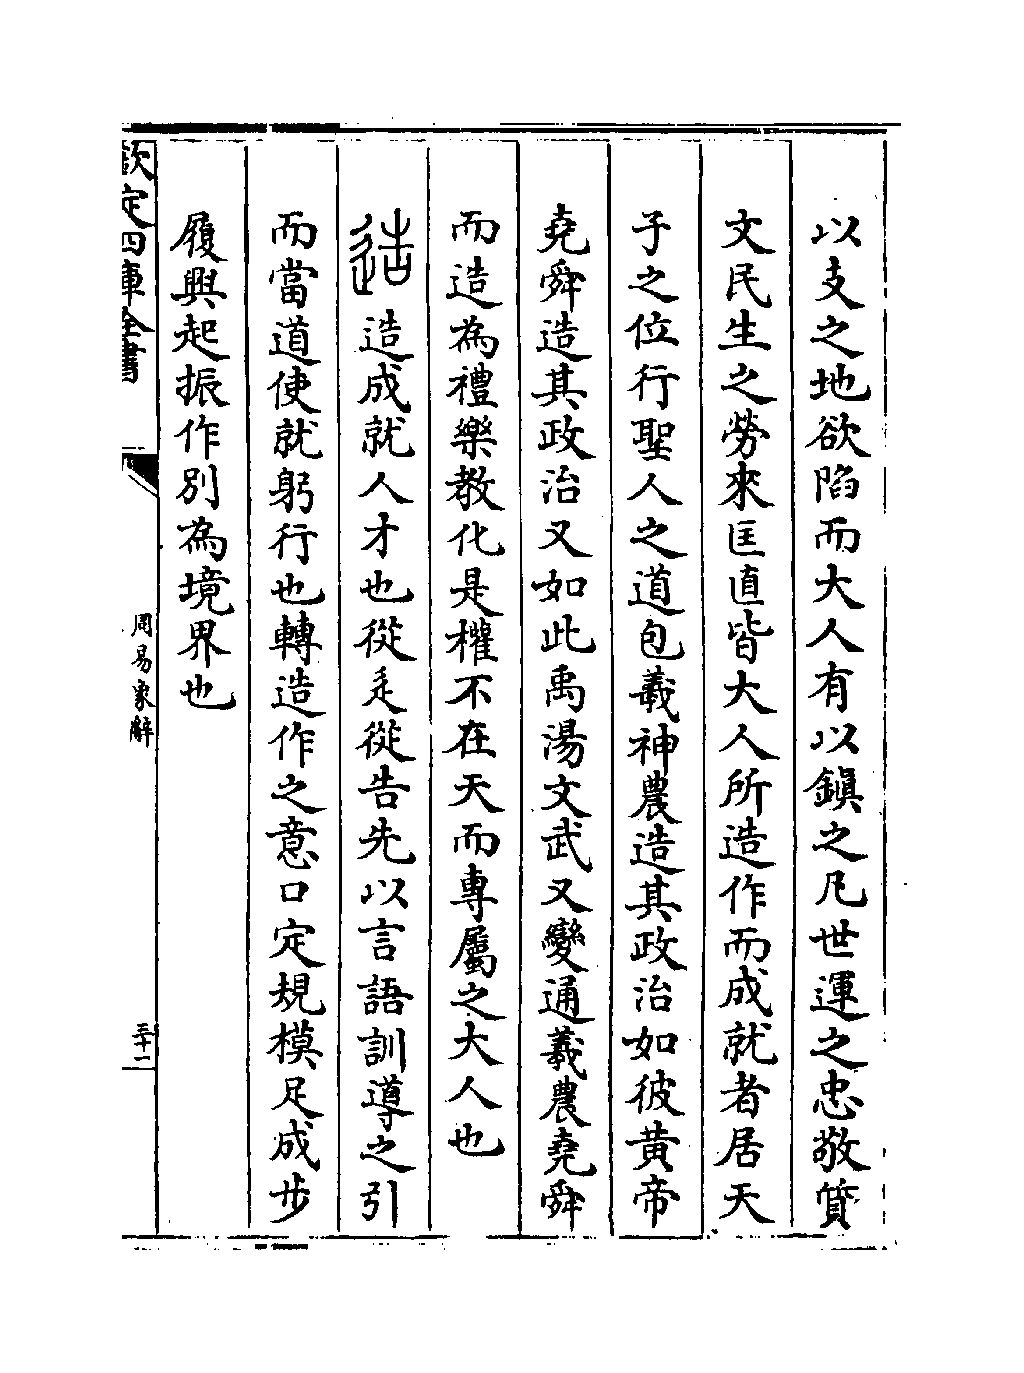 以支之地欲陷而大人有以鎮之凡世運之忠敬質
文民生之勞來匡直皆大人所造作而成就者居天
子之位行聖人之道包羲神農造其政治如彼黄帝
堯舜造其政治又如此禹湯文武又變通羲農堯舜
而造為禮樂教化是權不在天而專屬之大人也
造造成就人才也從辵從告先以言語訓導之引
而當道使就躬行也轉造作之意口定規模足成步
履興起振作別為境界也
欽定四庫全書
周易象辭
三十二